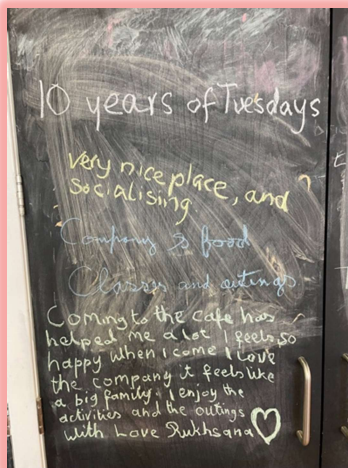 10 years of Tuesdays
very nice place, and
socialising
Company is food
Classes and outings
Coming to the cafe has
helped me a lot I feels so
happy when I come I love
the company it feels like
a big family. I enjoy the
activities and the outings
with Love Rukhsana